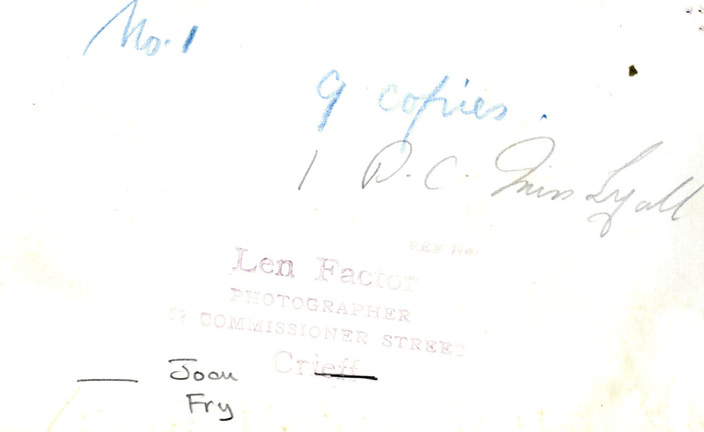 No. 1
9 copies.
1 P.C. Miss Lyall
REF No.
Len Factor
PHOTOGRAPHER
COMMISSIONER STREET
Crieff
Joan
Fry